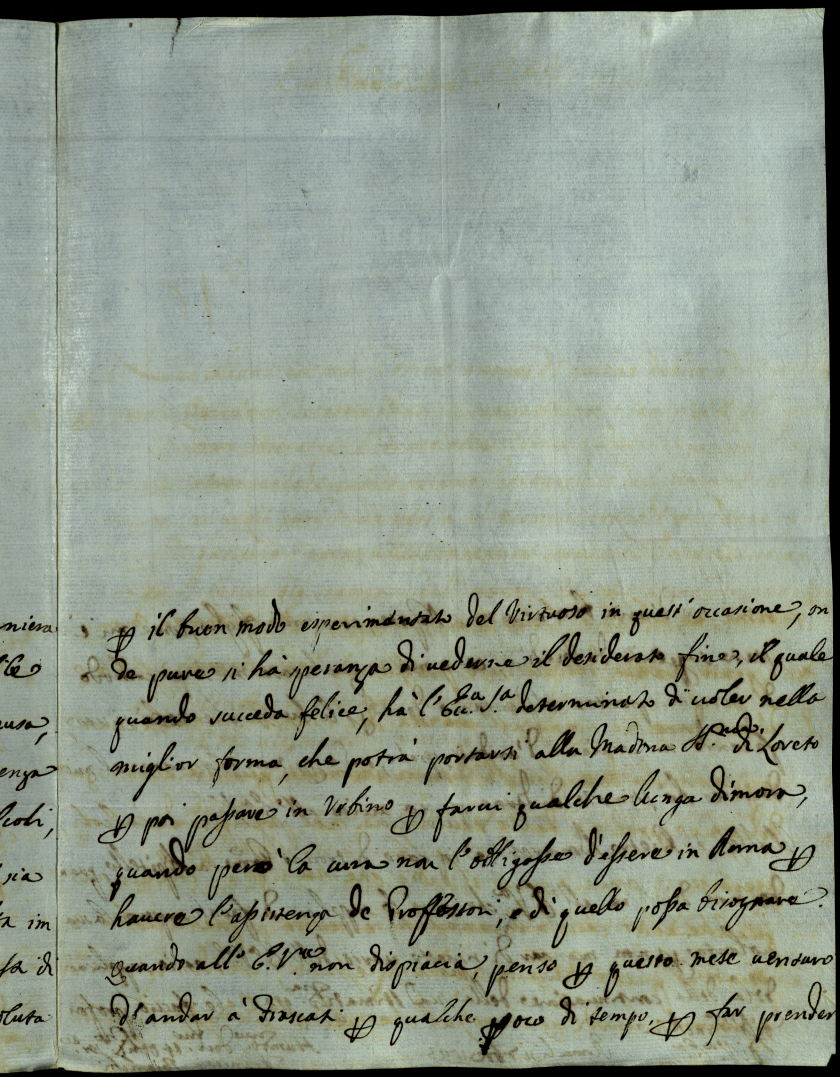 niera
ile
ausa,
enza
scoli,
sia
ta im
sa di
oluta
ꝑ il buon modo esperimentato del Virtuoso in quest'occasione, on
de pure si hà speranza di vederne il desiderato fine, il quale
quando succeda felice, hà l'Ecc.ª S.ª determinato di voler nella
miglior forma, che potrà portarsi alla Madona di Loreto
ꝑ poi passare in Urbino ꝑ farvi qualche lunga dimora,
quando però la cura non l'obligasse d'essere in Roma ꝑ
havere l'assistenza de Professori, e di quello possa bisognare.
Quando all' non dispiacia, penso ꝑ questo mese venturo
d'andar à Frascati ꝑ qualche poco di tempo, ꝑ far prender